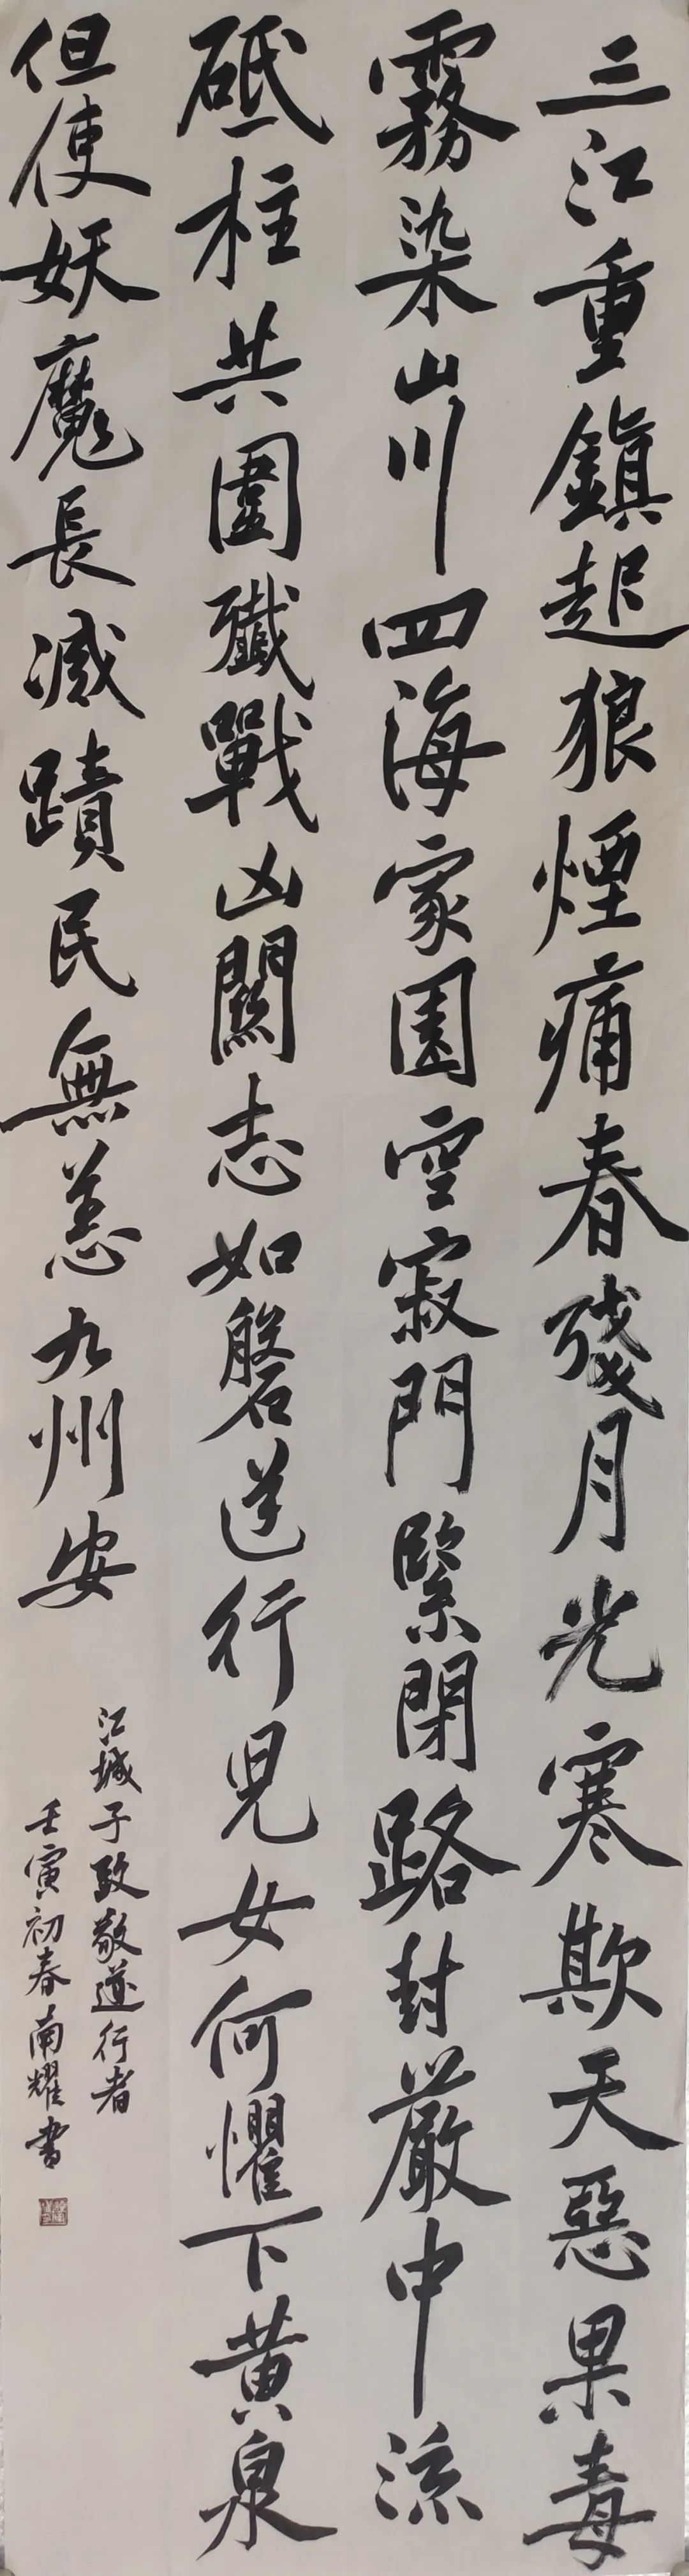 三江重鎮起狼煙痛春殘月光寒欺天惡果毒
霧染山川四海家園空寂門緊閉路封嚴中流
砥柱共圍殲戰凶關志如磐逆行兒女何懼下黄泉
但使妖魔長滅蹟民無恙九州安
江城子致敬逆行者
壬寅初春南耀书